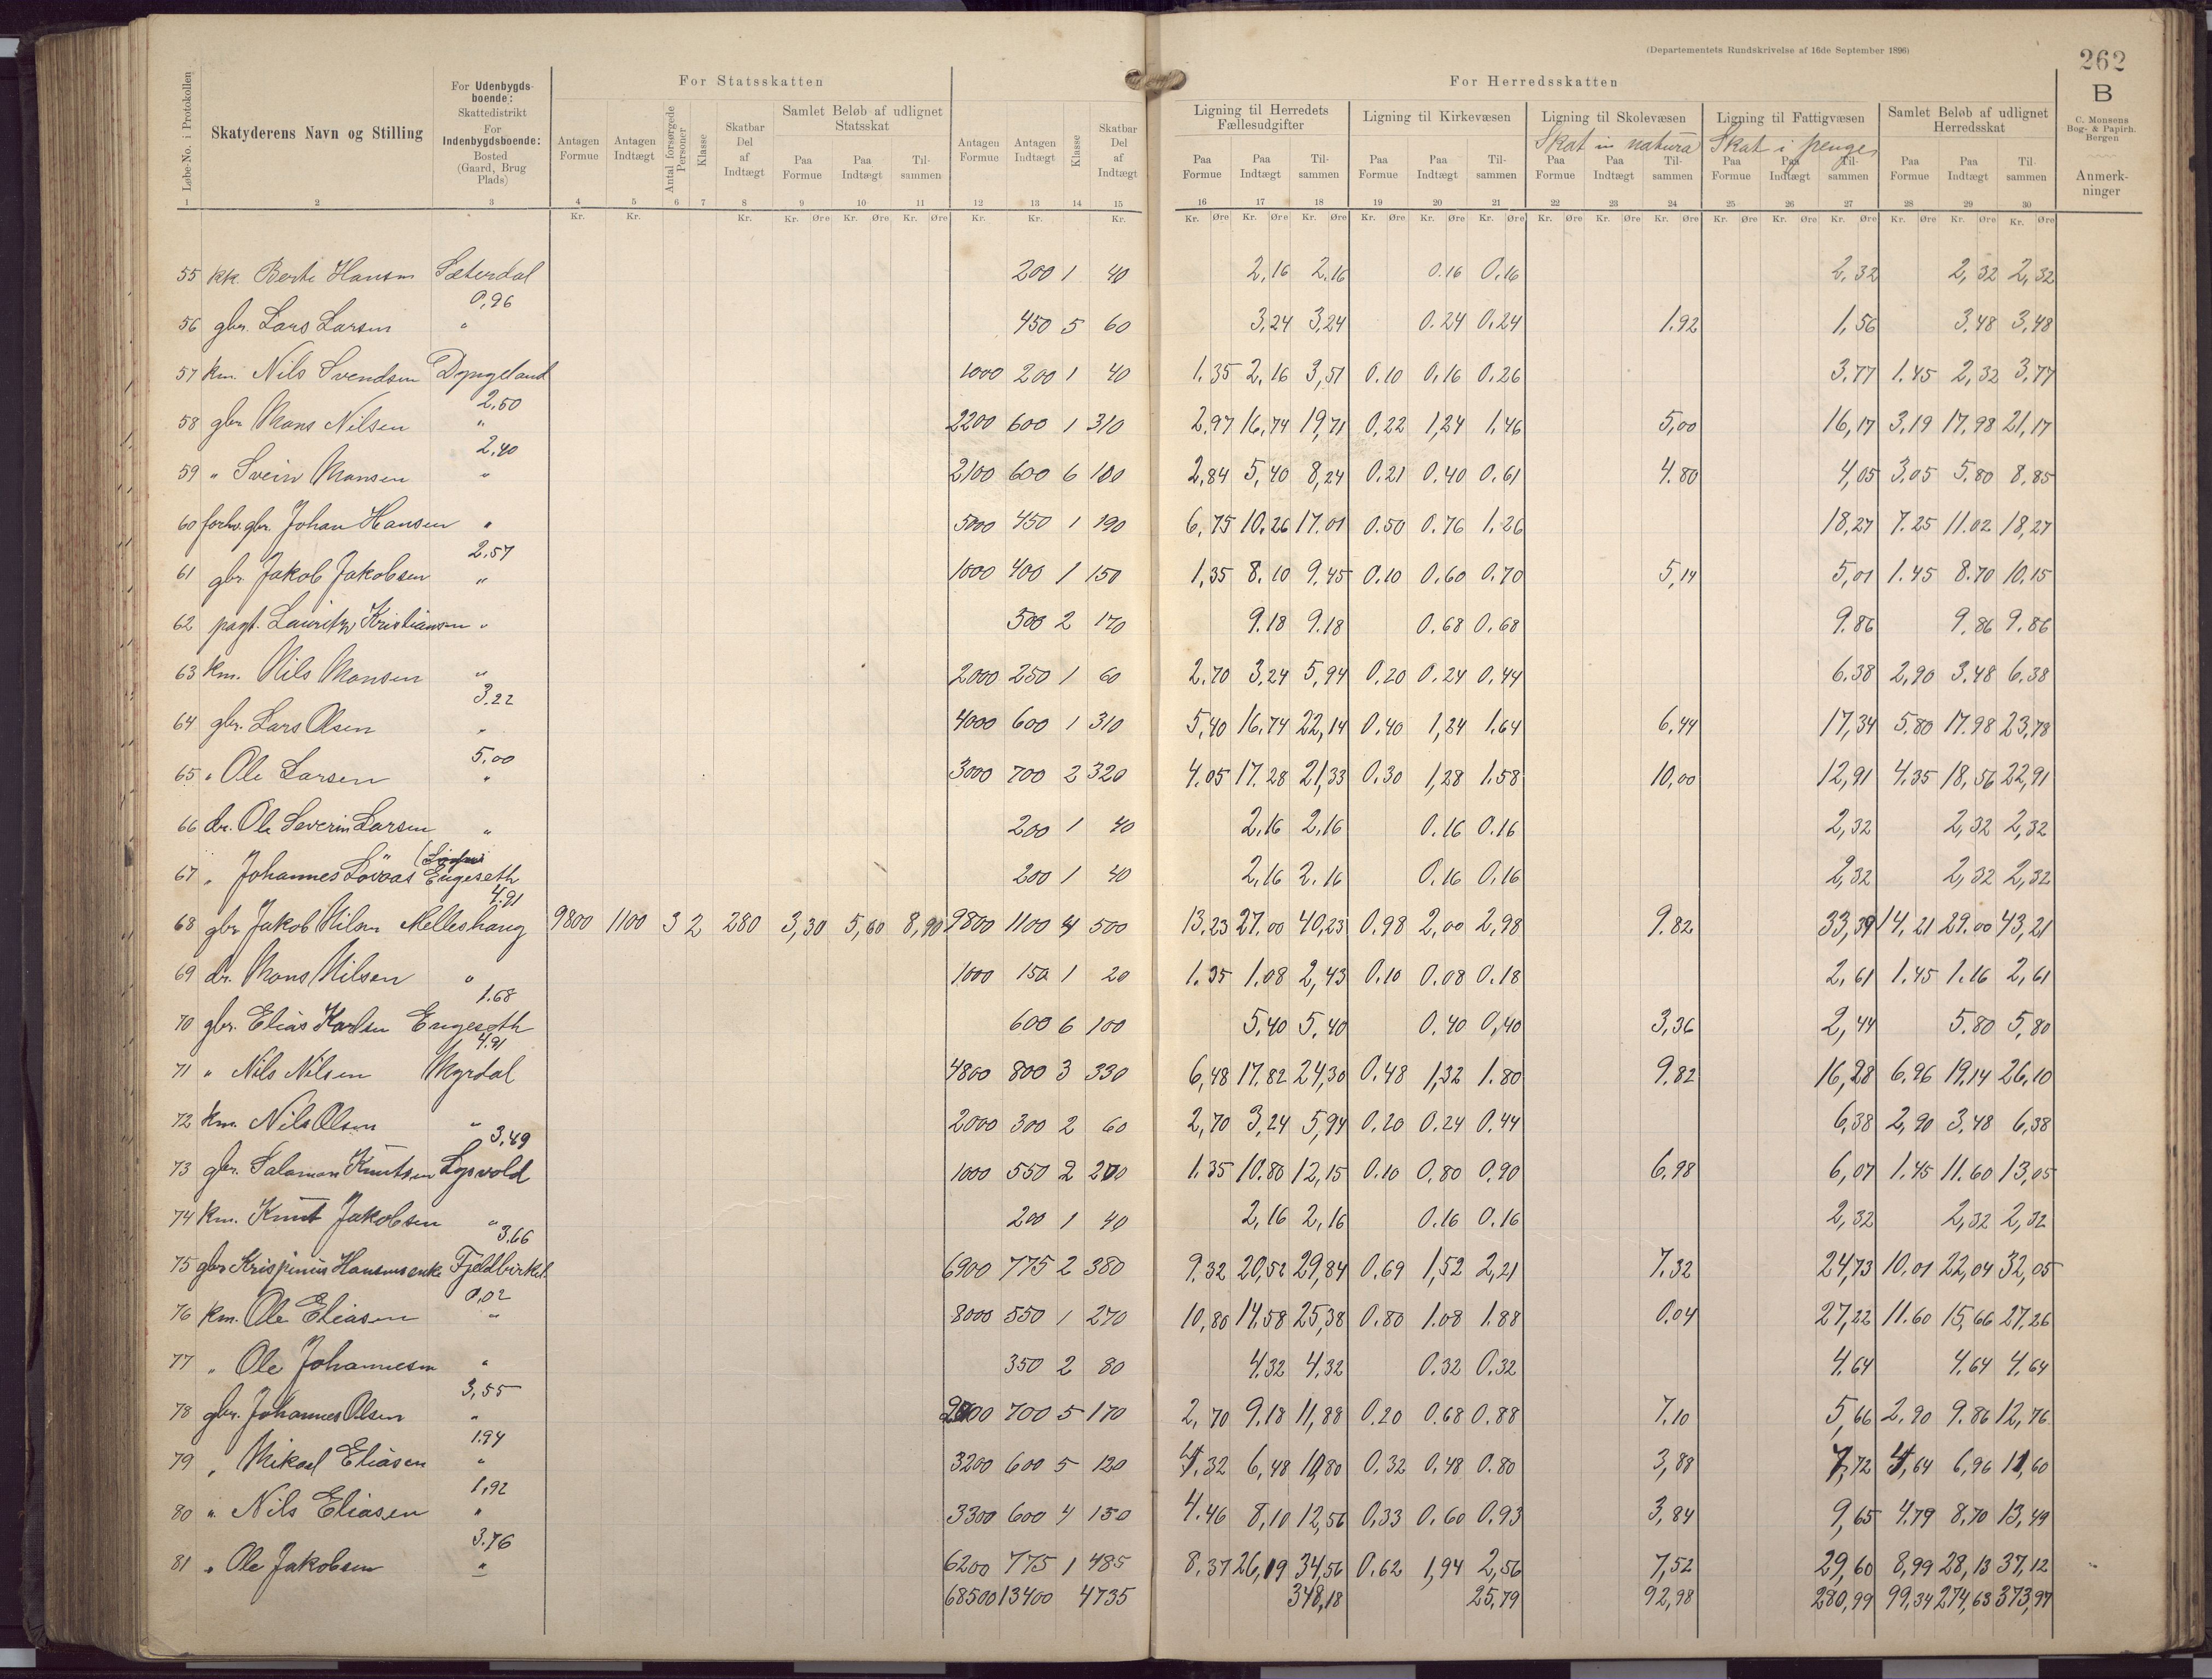 (Departementets Rundskrivelse af 16de September 1896)
262
B
C. Monsens Bog- & Papirh. Bergen
Løbe-No. i Protokollen
Skatyderens Navn og Stilling
For Udenbygds-boende: Skattedistrikt For Indenbygdsboende: Bosted (Gaard, Brug Plads)
For Statsskatten
Antagen Formue
Antagen Indtægt
Antal forsørgede Personer
Klasse
Skatbar Del af Indtægt
Samlet Beløb af udlignet Statsskat
Paa Formue Paa Indtægt Til-sammen
For Herredsskatten
Antagen Formue
Antagen Indtægt
Klasse
Skatbar Del af Indtægt
Ligning til Herredets Fællesudgifter
Paa Formue Paa Indtægt Til-sammen
Ligning til Kirkevæsen
Paa Formue Paa Indtægt Til-sammen
Ligning til Skolevæsen
Skat in natura
Paa Formue Paa Indtægt Til-sammen
Ligning til Fattigvæsen
Skat i penger
Paa Formue Paa Indtægt Til-sammen
Samlet Beløb af udlignet Herredsskat
Paa Formue Paa Indtægt Til-sammen
Anmerk-ninger
1 2 3 4 5 6 7 8 9 10 11 12 13 14 15 16 17 18 19 20 21 22 23 24 25 26 27 28 29 30
Kr. Kr. Kr. Kr. Øre Kr. Øre Kr. Øre Kr. Kr. Kr. Kr. Øre Kr. Øre Kr. Øre Kr. Øre Kr. Øre Kr. Øre Kr. Øre Kr. Øre Kr. Øre Kr. Øre Kr. Øre Kr. Øre Kr. Øre Kr. Øre Kr. Øre
55 kk. Berte Hansen Sæterdal 200 1 40 2,16 2.16 0.16 0.16 2,32 2,32 2,32
0,96
56 gbr. Lars Larsen " 450 5 60 3,24 3,24 0.24 0.24 1.92 1,56 3,48 3,48
57 km. Nils Svendsen Dyngeland 1000 200 1 40 1.35 2,16 3,51 0.10 0,16 0.26 3.77 1.45 2,32 3,77
2,50
58 gbr Mons Nilsen " 2200 600 1 310 2,97 16,74 19,71 0,22 1,24 1,46 5,00 16,17 3,19 17,98 21,17
2,40
59 " Svein Monsen " 2100 600 6 100 2,84 5,40 8,24 0.21 0.40 0.61 4.80 4,05 3.05 5.80 8,85
60 forhv. gbr. Johan Hansen " 5000 450 1 190 6,75 10,26 17.01 0.50 0.76 1.26 18,27 7.25 11.02 18,27
2,57
61 gbr. Jakob Jakobsen " 1000 400 1 150 1,35 8,10 9,45 0.10 0.60 0.70 5,14 5,01 1.45 8.70 10,15
62 pagt. Lauritz Kristiansen " 500 2 170 9.18 9.18 0.68 0.68 9.86 9,86 9.86
63 km. Nils Monsen " 2000 250 1 60 2,70 3,24 5,94 0,20 0.24 0,44 6.38 2,90 3.48 6.38
3.22
64 gbr. Lars Olsen " 4000 600 1 310 5,40 16,74 22,14 0.40 1,24 1.64 6,44 17,34 5,80 17.98 23,78
5,00
65 " Ole Larsen " 3000 700 2 320 4.05 17.28 21,33 0.30 1,28 1.58 10,00 12,91 4.35 18,56 22,91
66 dr. Ole Severin Larsen " 200 1 40 2,16 2,16 0.16 0.16 2,32 2,32 2,32
67 " Johannes Løvaas Engeseth 200 1 40 2,16 2.16 0.16 0.16 2,32 2,32 2,32
4.91
68 gbr Jakob Nilsen Melleshaug 9800 1100 3 2 280 3,30 5,60 8,90 9800 1100 4 500 13,23 27,00 40,23 0.98 2,00 2,98 9.82 33,39 14,21 29.00 43,21
69 dr. Mons Nilsen " 1000 150 1 20 1.35 1.08 2,43 0.10 0.08 0.18 2,61 1.45 1.16 2,61
1.68
70 gbr. Elias Karlsen Engeseth 600 6 100 5,40 5,40 0.40 0,40 3,36 2,44 5.80 5,80
4.91
71 " Nils Nilsen Myrdal 4800 800 3 330 6,48 17.82 24,30 0.48 1,32 1.80 9.82 16,28 6.96 19,14 26,10
72 km. Nils Olsen " 2000 300 2 60 2,70 3,24 5,94 0.20 0.24 0.44 6,38 2,90 3,48 6,38
3,49
73 gbr. Salamon Knutsen Lysvold 1000 550 2 200 1.35 10.80 12,15 0.10 0,80 0,90 6,98 6,07 1.45 11.60 13,05
74 km. Knut Jakobsen " 200 1 40 2,16 2,16 0.16 0.16 2,32 2,32 2,32
3,66
75 gbr Krispinus Hansens enke Fjeldbirkel. 6900 775 2 380 9.32 20,52 29,84 0.69 1,52 2,21 7.32 24,73 10,01 22,04 32,05
0,02
76 km. Ole Eliasen " 8000 550 1 270 10,80 14,58 25,38 0.80 1.08 1.88 0.04 27,22 11.60 15,66 27.26
77 " Ole Johannesen " 350 2 80 4.32 4,32 0.32 0.32 4.64 4,64 4,64
3,55
78 gbr. Johannes Olsen " 2000 700 5 170 2,70 9.18 11,88 0.20 0.68 0.88 7,10 5,66 2.90 9.86 12,76
1.94
79 " Mikael Eliasen " 3200 600 5 120 4.32 6,48 10,80 0.32 0.48 0.80 3,88 7,72 4,64 6,96 11,60
1,92
80 " Nils Eliasen " 3300 600 4 150 4.46 8,10 12,56 0,33 0.60 0.93 3,84 9,65 4.79 8,70 13,49
3.76
81 " Ole Jakobsen " 6200 775 1 485 8.37 26,19 34,56 0.62 1,94 2,56 7,52 29,60 8,99 28,13 37,12
68500 13400 4735 348,18 25,79 92,98 280,99 99,34 274,63 373,97